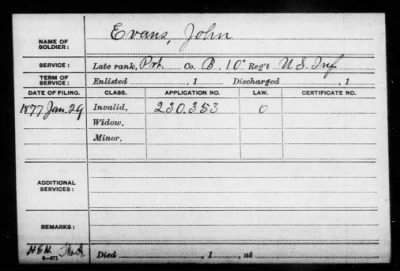 NAME OF SOLDIER: Evans, John
SERVICE: Late rank, Prt. Co. B. 10" Reg't U.S. Inf
TERM OF SERVICE: Enlisted , 1 Discharged , 1
DATE OF FILING. CLASS. APPLICATION NO. LAW. CERTIFICATE NO.
1877 Jan. 29 Invalid, 230.353 O
Widow,
Minor,
ADDITIONAL SERVICES:
REMARKS:
Died , 1 , at